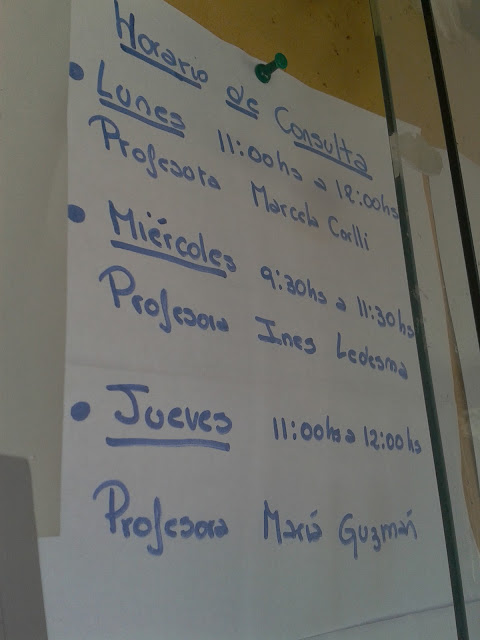 Horario de Consulta
• Lunes 11:00hs a 12:00hs
Profesora Marcela Coılli
• Miércoles 9:30hs a 11:30hs
Profesora Ines Ledesma
• Jueves 11:00hs a 12:00hs
Profesora María Guzmań